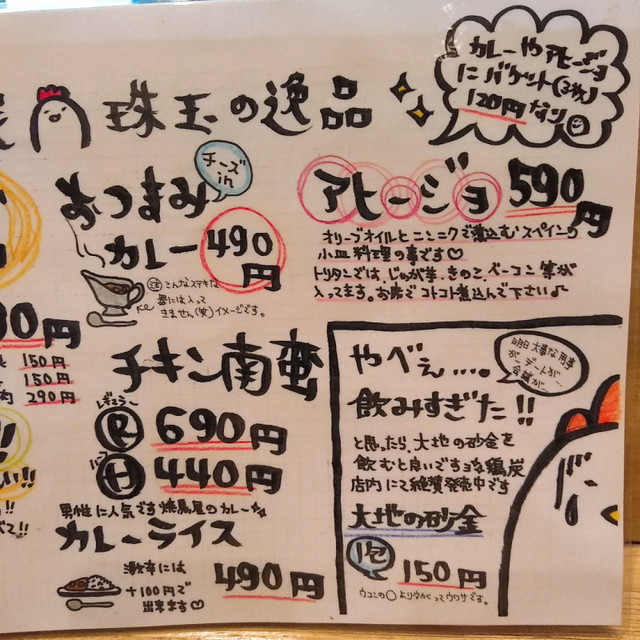 珠玉の逸品
カレーやアヒージョ
にバケット(3枚)
120円なり
おつまみ
チーズ
in
カレー 490
円
注 こんなステキな
器には入って
きません(笑)イメージです。
アヒージョ 590
円
オリーブオイルとニンニクで煮込むスペインの
小皿料理の事です♡
トリタンでは、じゃが芋、きのこ、ベーコン等が
入ってます。お席でコトコト煮込んで下さい♪
00円
150円
150円
肉 290円
チキン南蛮
レギュラー
R 690円
ハーフ
H 440円
男性に人気です 焼鳥屋のカレー
カレーライス
激辛には
+100円で
出来ます♡
490円
やべぇ....。
明日大事な用事
が…デートが…
会議が…
飲みすぎた!!
と思ったら、大地の砂金を
飲むと良いですョ 鶏炭
店内にて絶賛発売中です
大地の砂金
1包
150円
ウコンの〇よりきかってウワサです。